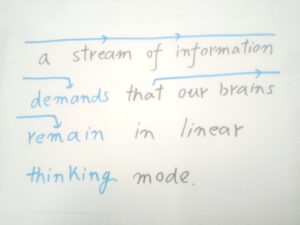 a stream of information
demands that our brains
remain in linear
thinking mode.